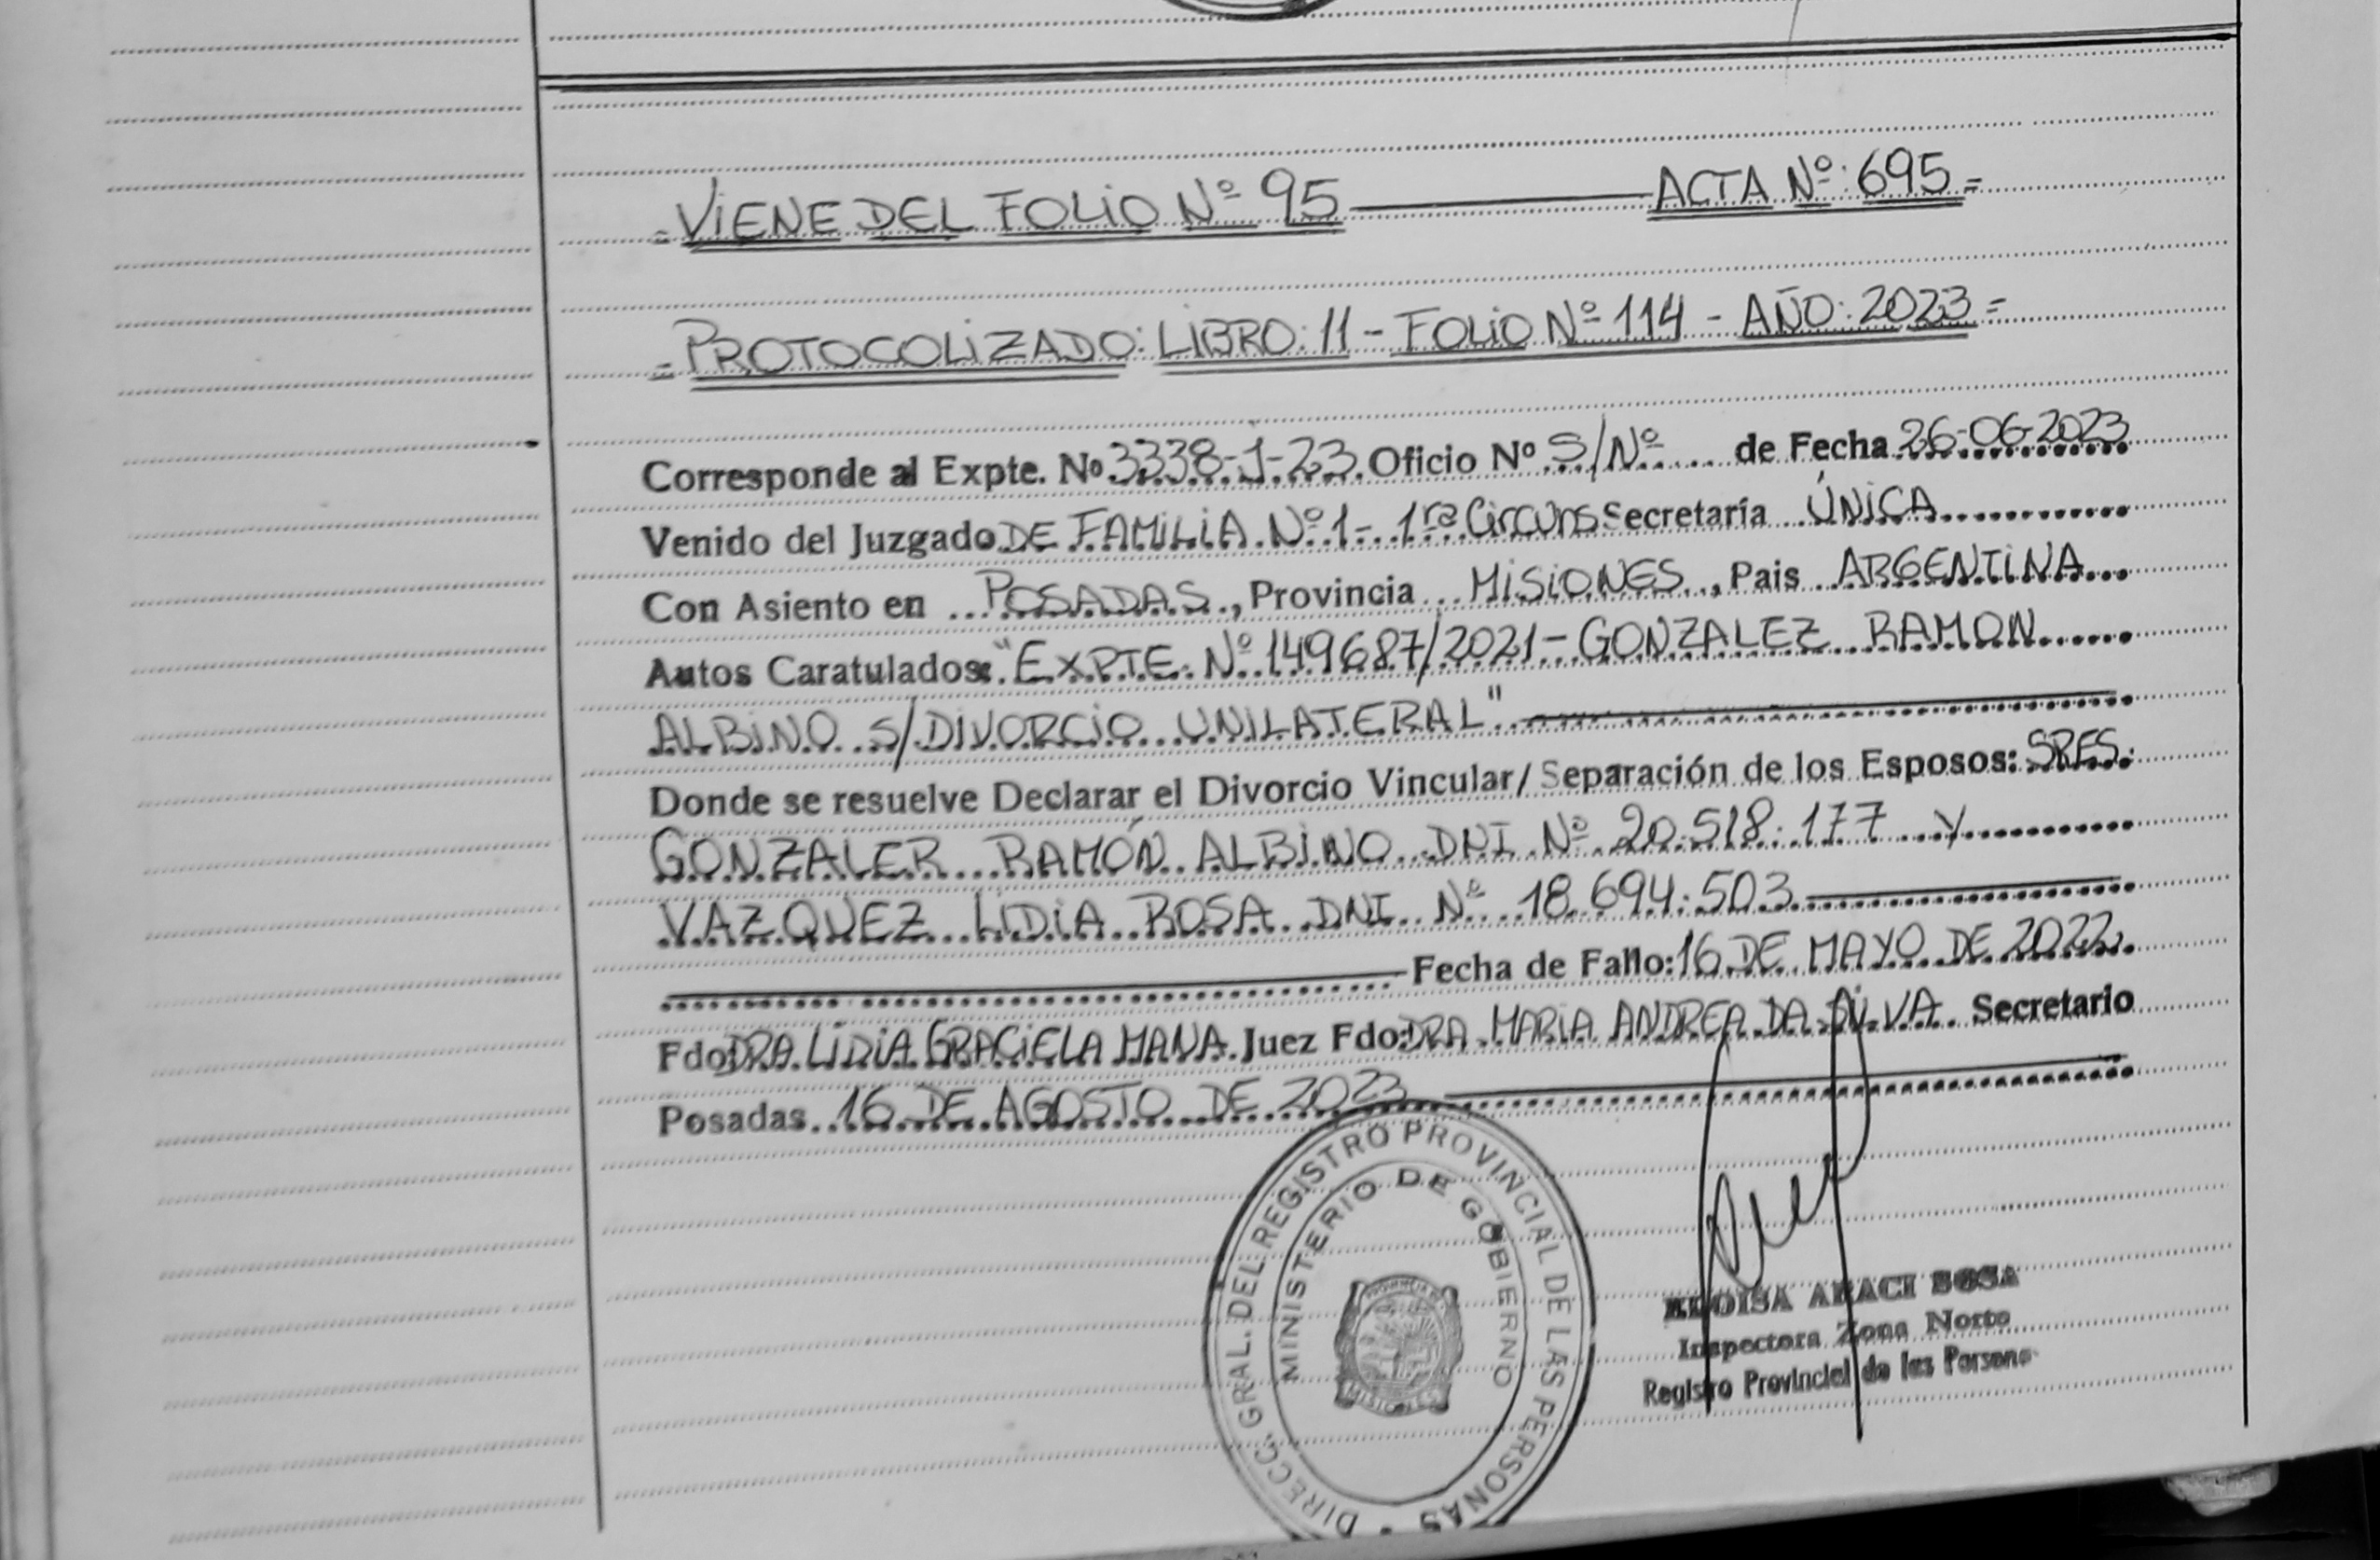 = VIENE DEL FOLIO Nº 95 ——— ACTA Nº: 695 =
= PROTOCOLIZADO: LIBRO: 11 - FOLIO Nº 114 - AÑO: 2023 =
Corresponde al Expte. Nº 3338-J-23. Oficio Nº S/Nº de Fecha 26-06-2023
Venido del Juzgado DE FAMILIA Nº 1 - 1ra Circuns Secretaría ÚNICA
Con Asiento en POSADAS, Provincia MISIONES, Pais ARGENTINA
Autos Caratulados: "EXPTE. Nº 149687/2021 - GONZALEZ RAMON
ALBINO S/DIVORCIO UNILATERAL"
Donde se resuelve Declarar el Divorcio Vincular/ Separación de los Esposos: SRES.
GONZALER RAMÓN ALBINO DNI Nº 20.518.177 Y
VAZQUEZ LIDIA ROSA DNI Nº 18.694.503
Fecha de Fallo: 16 DE MAYO DE 2022
Fdo: DRA. LIDIA GRACIELA MANA. Juez Fdo: DRA. MARIA ANDREA DA SILVA. Secretario
Posadas 16 DE AGOSTO DE 2023
DIRECC. GRAL. DEL REGISTRO PROVINCIAL DE LAS PERSONAS
MINISTERIO DE GOBIERNO
MISIONES
ELOISA ARACI SOSA
Inspectora Zona Norte
Registro Provincial de las Persona